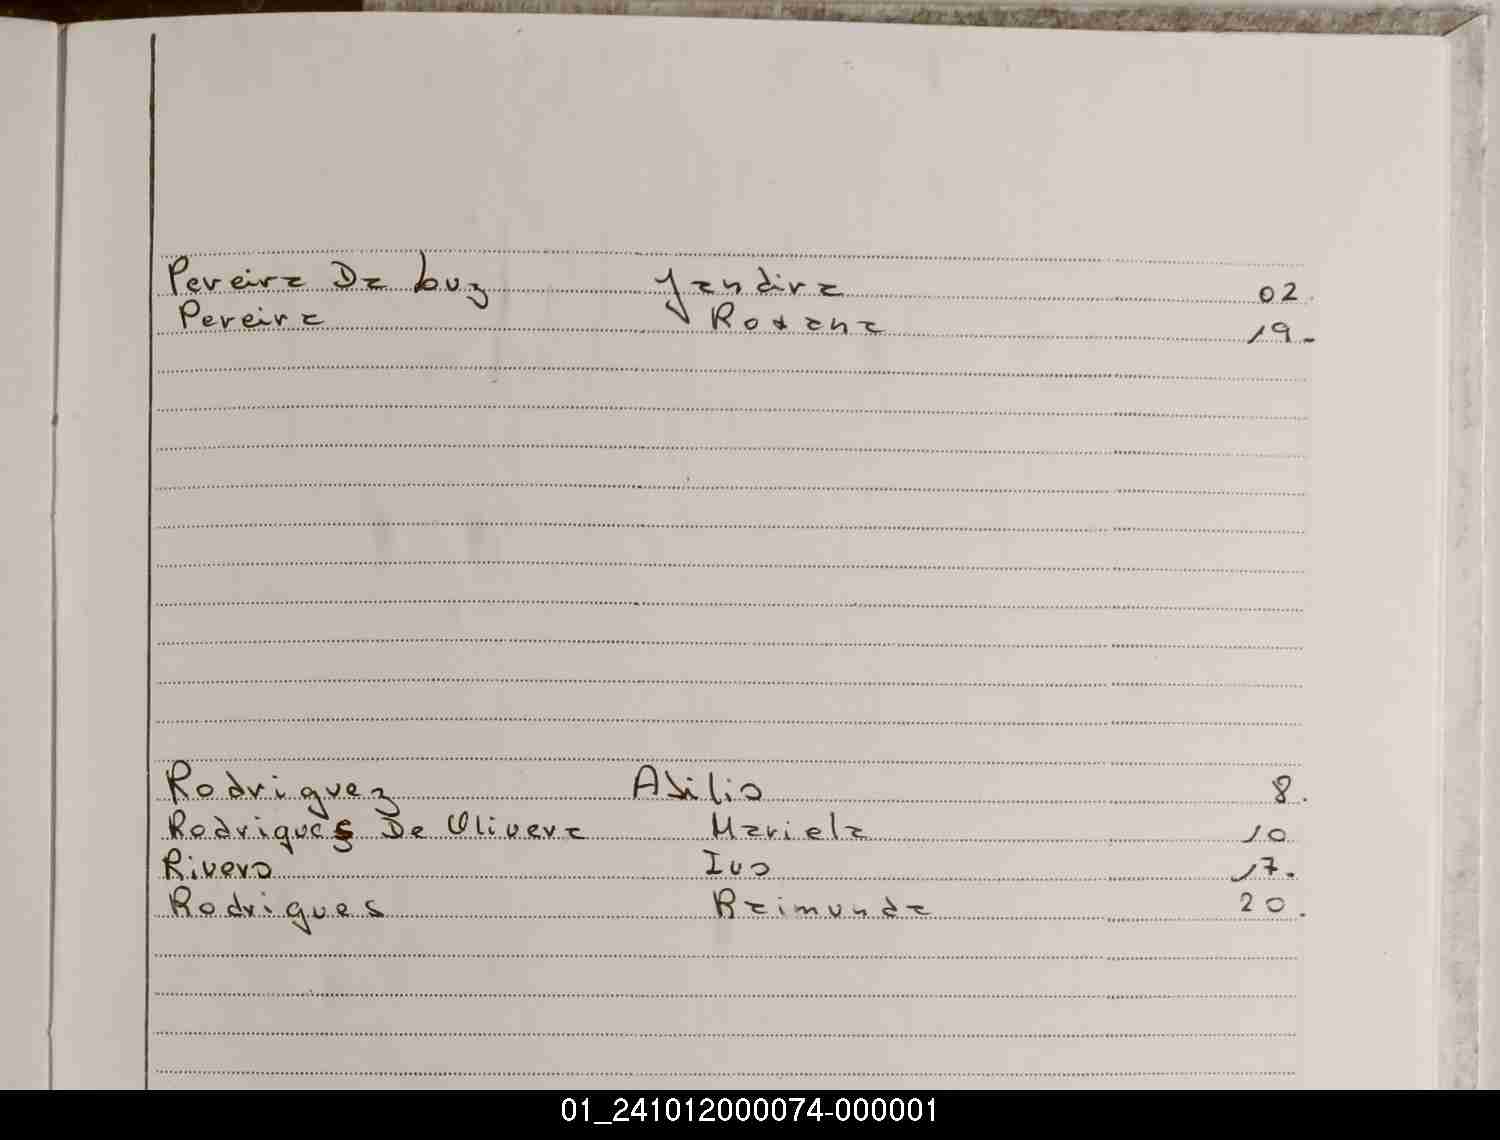 Pereira Da Luz Jandira 02.
Pereira Rosana 19.
Rodriguez Abilio 8.
Rodrigues De Olivera Mariela 10
Rivero Ivo 17.
Rodrigues Raimunda 20.
01_241012000074-000001